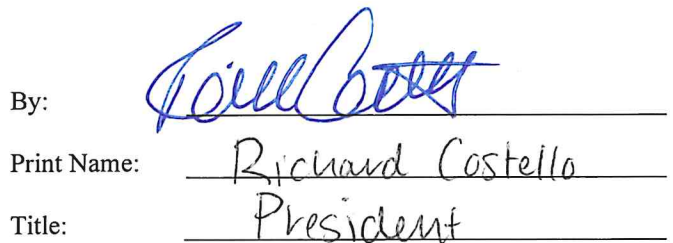 By:
Print Name: Richard Costello
Title: President